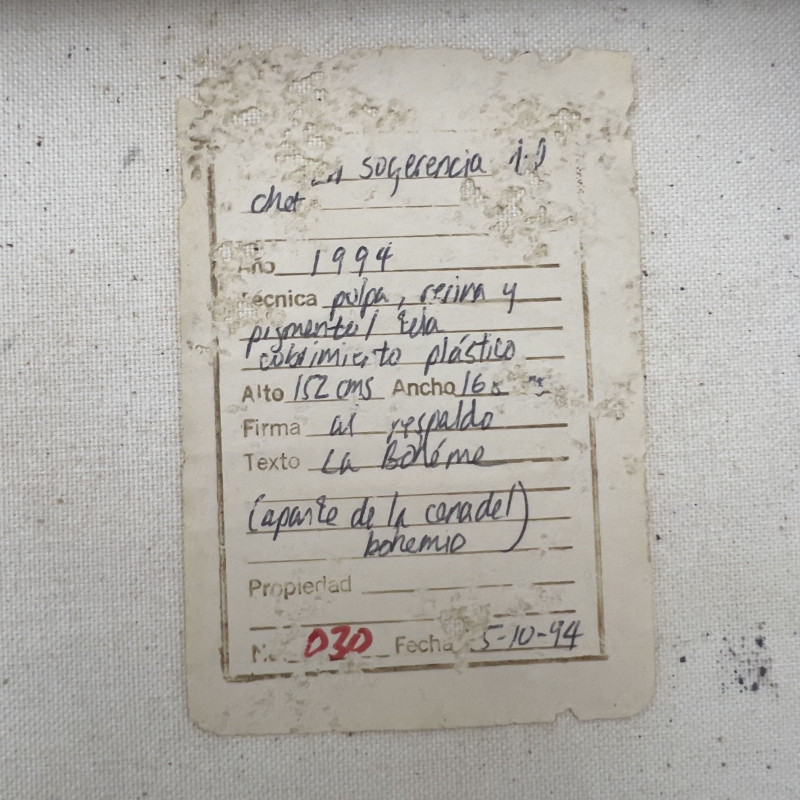 sogerencia
chef
Año 1994
Técnica pulpa, resina y
pigmento/ tela
cobrimiento plástico
Alto 152 cms Ancho
Firma al respaldo
Texto La Bohéme
(aparte de la cena del)
bohemio
Propiedad
030 Fecha 5-10-94